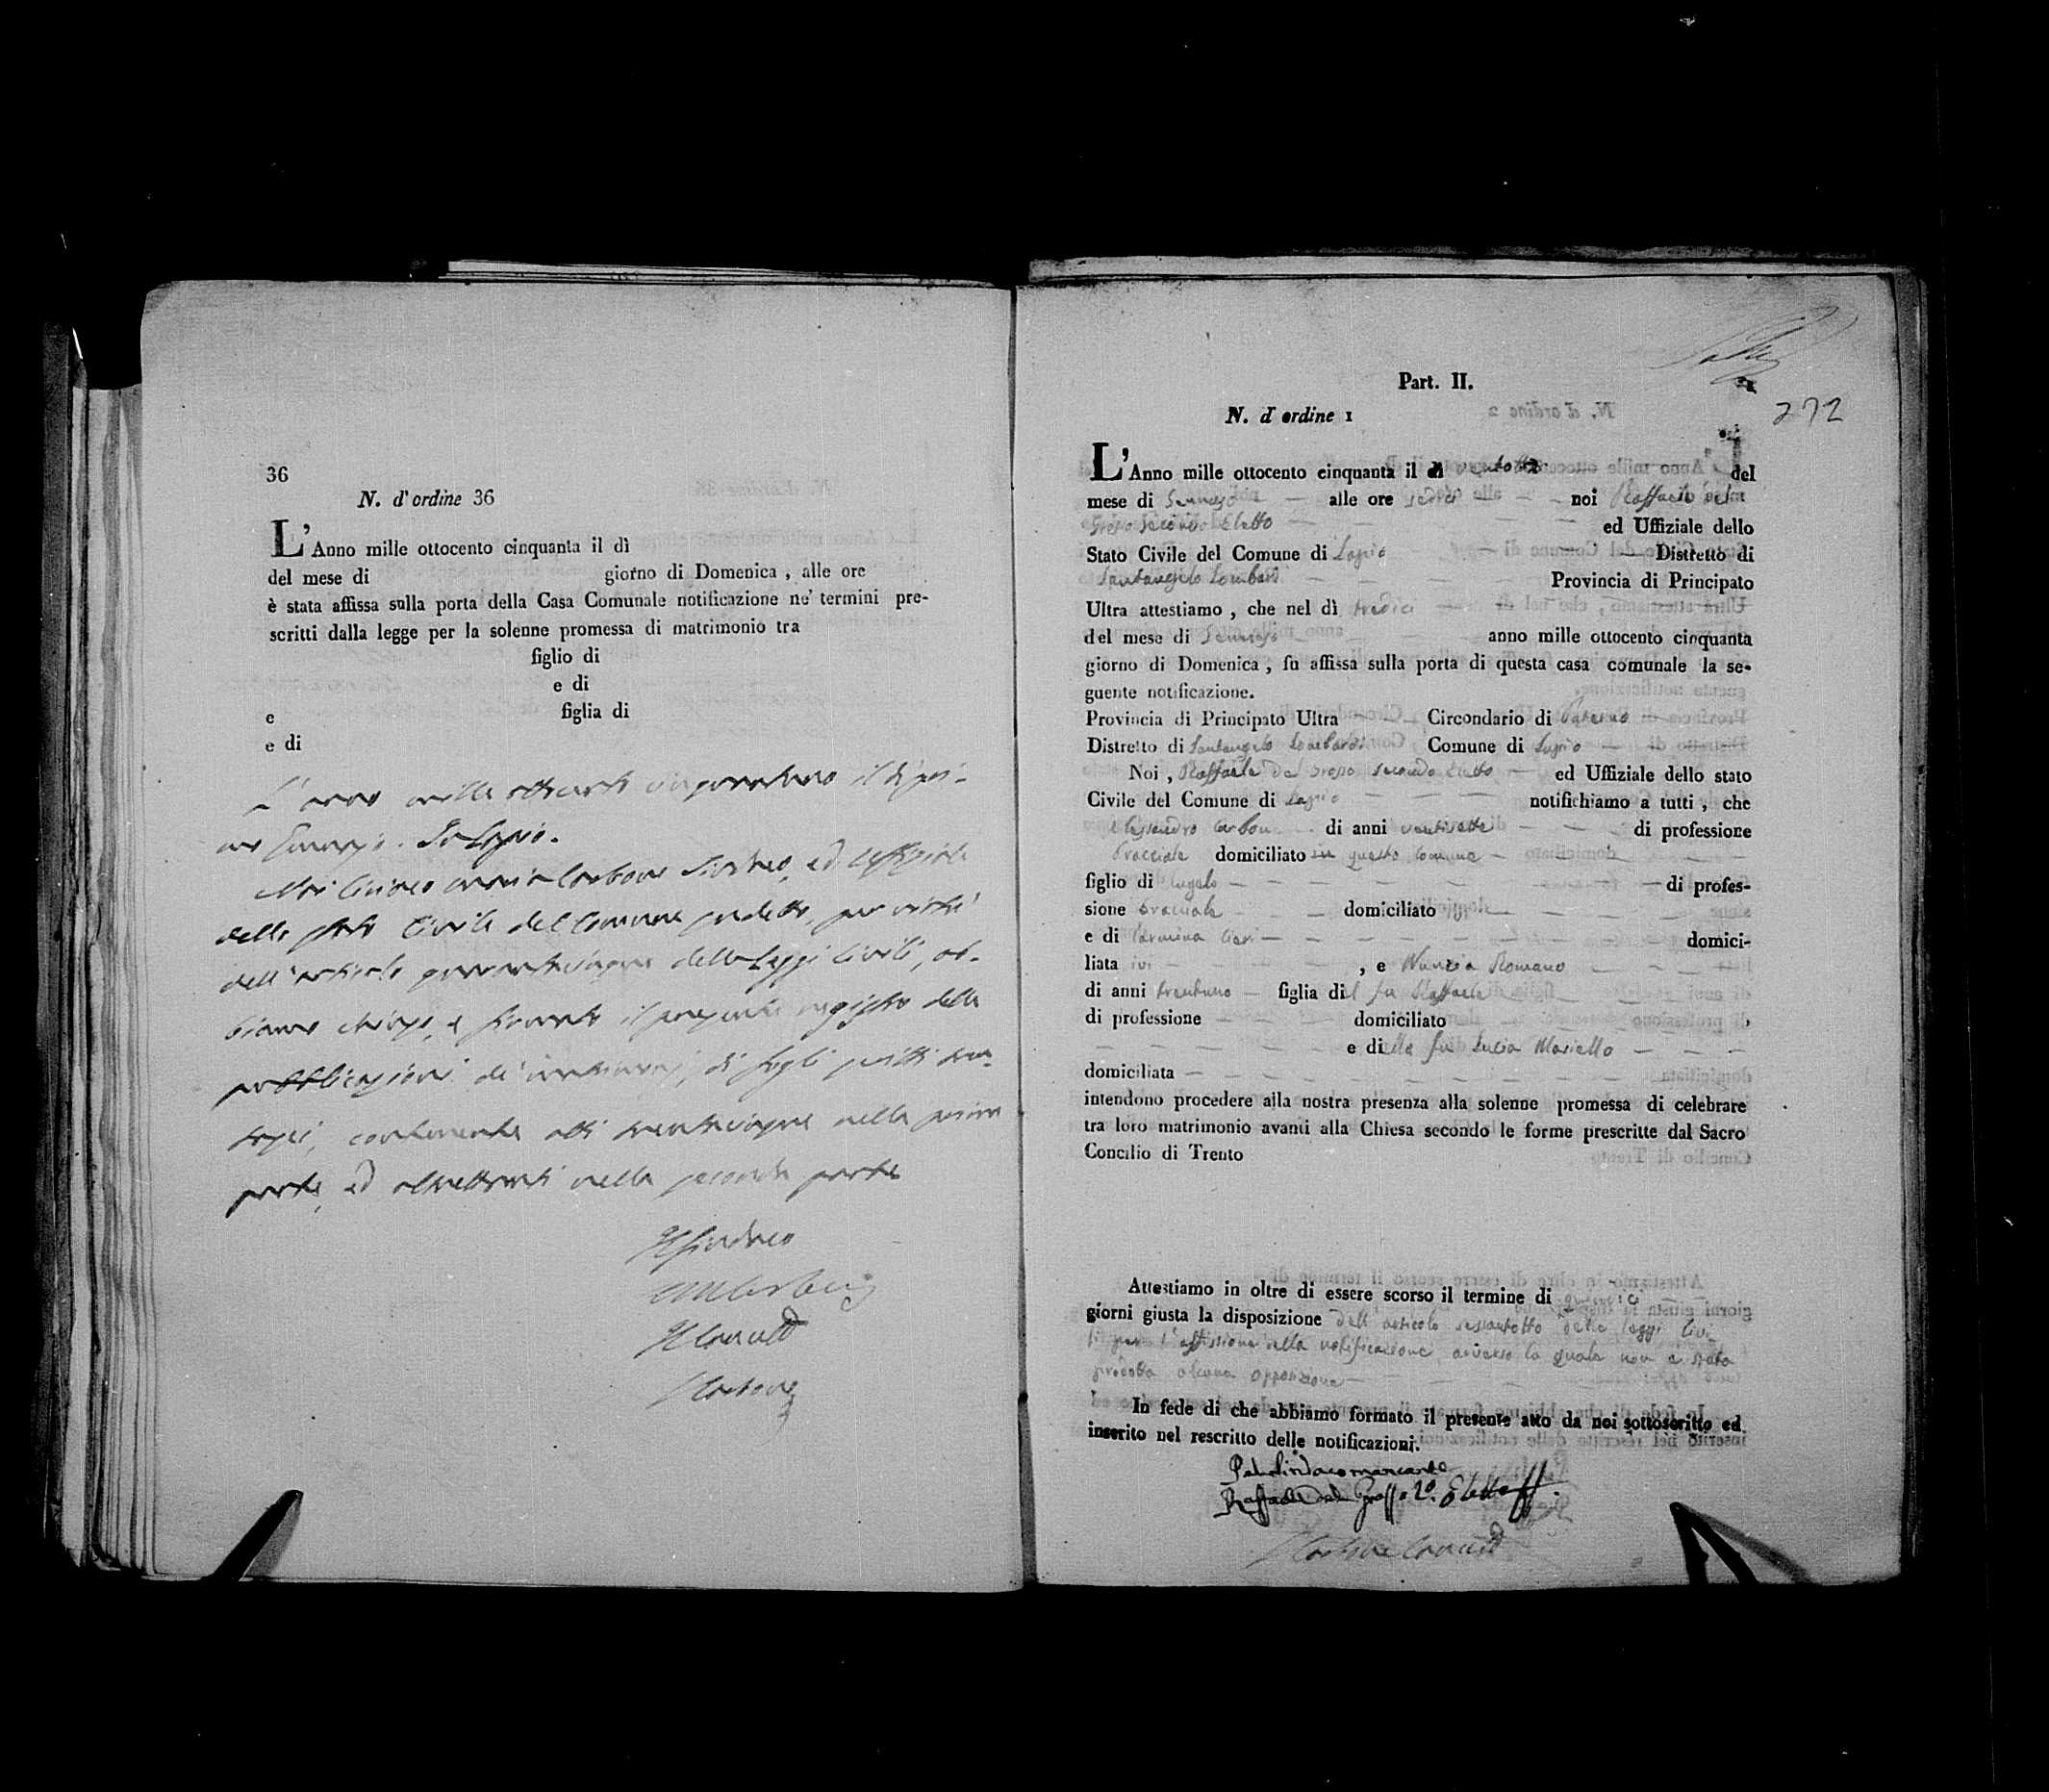 36
N. d'ordine 36
L'Anno mille ottocento cinquanta il dì
del mese di giorno di Domenica, alle ore
è stata affissa sulla porta della Casa Comunale notificazione ne' termini pre-
scritti dalla legge per la solenne promessa di matrimonio tra
figlio di
e di
e figlia di
e di
L'anno mille ottocento cinquantuno il dì pri-
mo Gennajo. In Lapio.
Noi Carbone Sindaco, ed Uffiziale
dello stato Civile del Comune suddetto, per virtù
dell'articolo quarantacinque delle Leggi Civili, ab-
biamo chiuso, e firmato il presente registro delle
pubblicazioni de' matrimonj, di fogli scritti
contenente atti trentacinque nella prima
parte, ed altrettanti nella seconda parte
Il Sindaco
Il Cancell
Carbone
Part. II.
272
N. d'ordine 1
L'Anno mille ottocento cinquanta il dì ventotto del
mese di Gennajo alle ore sedici noi Raffaele del
Grosso secondo Eletto ed Uffiziale dello
Stato Civile del Comune di Lapio Distretto di
Santangelo Lombardi Provincia di Principato
Ultra attestiamo, che nel dì tredici
del mese di Gennajo anno mille ottocento cinquanta
giorno di Domenica, fu affissa sulla porta di questa casa comunale la se-
guente notificazione.
Provincia di Principato Ultra Circondario di Paterno
Distretto di Santangelo Lombardi Comune di Lapio
Noi, Raffaele del Grosso secondo Eletto ed Uffiziale dello stato
Civile del Comune di Lapio notifichiamo a tutti, che
Alessandro Carbone di anni ventisette di professione
Bracciale domiciliato in questo Comune
figlio di Angelo di profes-
sione bracciale domiciliato
e di Carmina domici-
liata ivi , e Nunzia Romano
di anni trentuno figlia del fu Raffaele
di professione domiciliato
e della fu Lucia Mariello
domiciliata
intendono procedere alla nostra presenza alla solenne promessa di celebrare
tra loro matrimonio avanti alla Chiesa secondo le forme prescritte dal Sacro
Concilio di Trento
Attestiamo in oltre di essere scorso il termine di quindici
giorni giusta la disposizione dell'articolo sessantotto delle leggi Civi
li per l'affissione della notificazione, avverso la quale non è stata
prodotta alcuna opposizione
In fede di che abbiamo formato il presente atto da noi sottoscritto ed
inserito nel rescritto delle notificazioni.
Pel Sindaco mancante
Raffaele del Grosso 2º. Eletto
Carbone Cancell